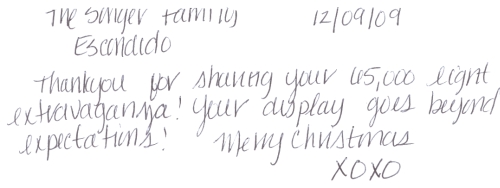 The Singer Family 12/09/09
Escondido
Thankyou for sharing your 45,000 light
extravaganza! Your display goes beyond
expectations! Merry Christmas
XOXO